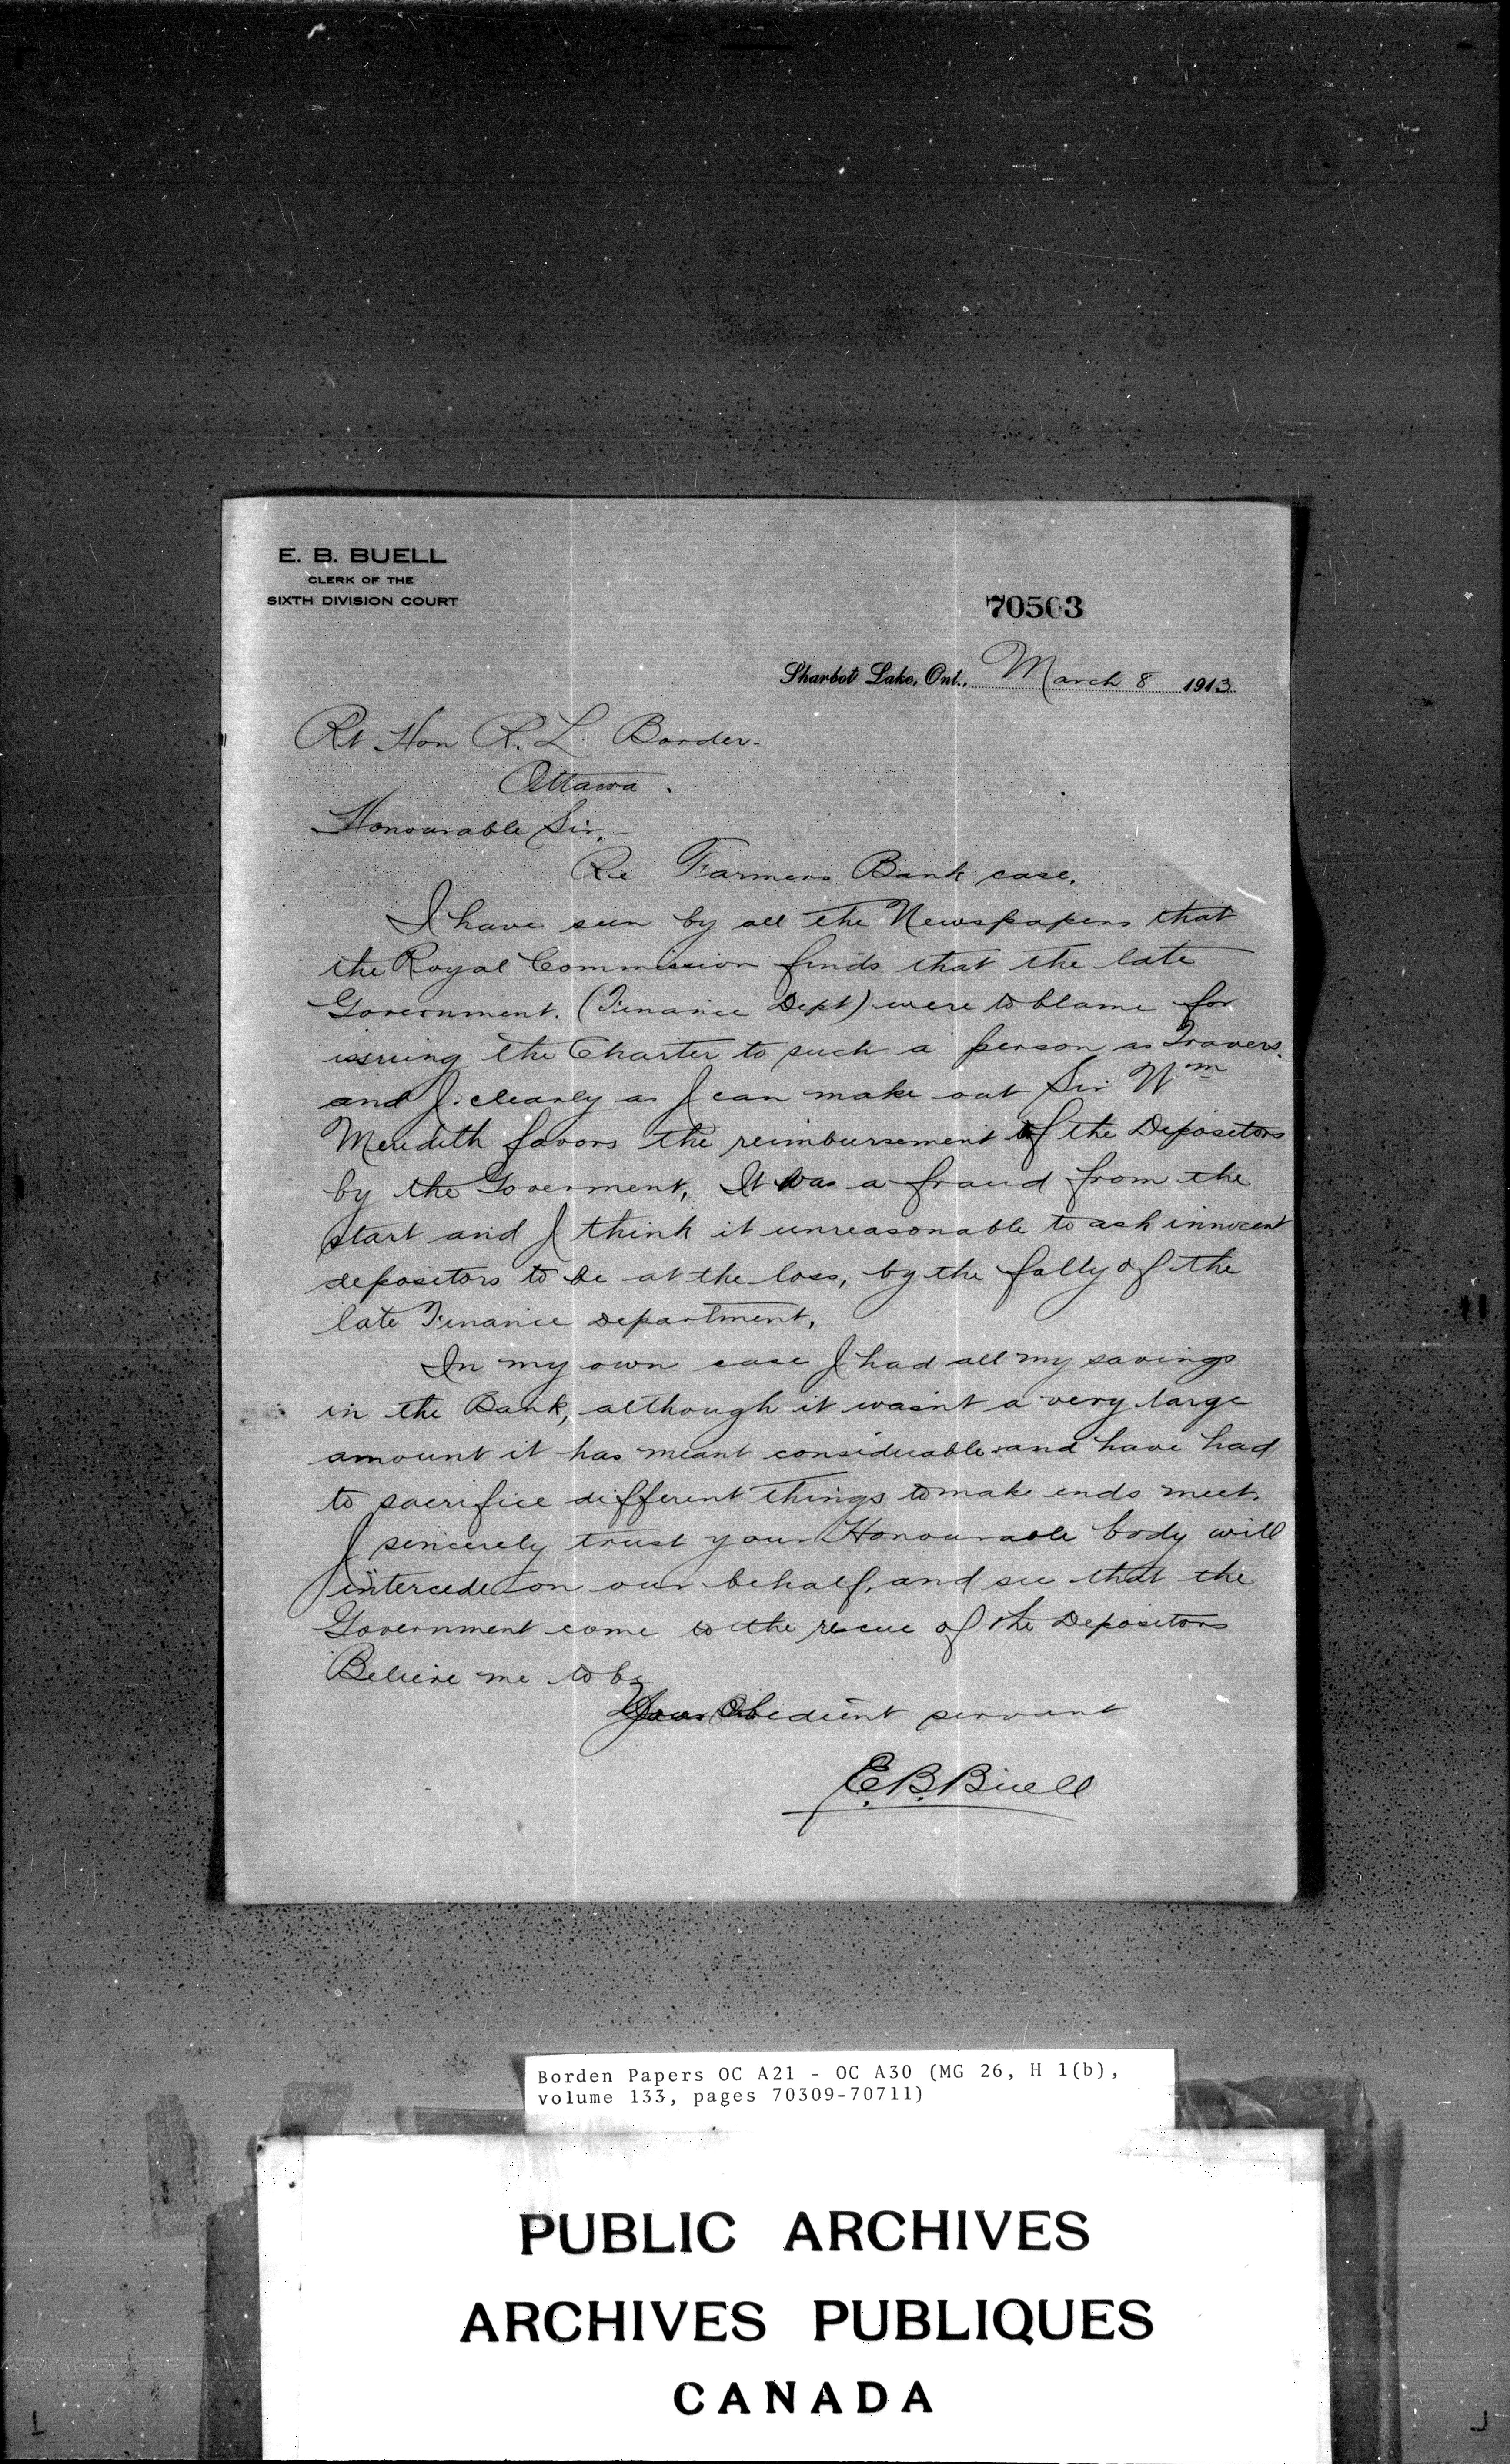 E. B. BUELL
CLERK OF THE
SIXTH DIVISION COURT
70503
Sharbot Lake, Ont., March 8 1913.
Rt Hon R. L. Borden.
Ottawa.
Honourable Sir,-
Re Farmers Bank case.
I have seen by all the Newspapers that
the Royal Commission finds that the late
Government. (Finance Dept) were to blame for
issuing the Charter to such a person as Travers.
and J. clearly as I can make out Sir Wm
Meridith favors the reimbursement of the Depositors
by the Goverment, It was a fraud from the
start and I think it unreasonable to ask innocent
depositors to be at the loss, by the folly of the
late Finance Department,
In my own case I had all my savings
in the Bank, although it wasn't a very large
amount it has meant considerable and have had
to sacrifice different things to make ends meet.
I sincerely trust your Honourable body will
intercede on our behalf, and see that the
Government come to the rescue of the Depositors
Believe me to be
Your Obedient servant
E.B. Buell
Borden Papers OC A21 - OC A30 (MG 26, H 1(b),
volume 133, pages 70309-70711)
PUBLIC ARCHIVES
ARCHIVES PUBLIQUES
CANADA